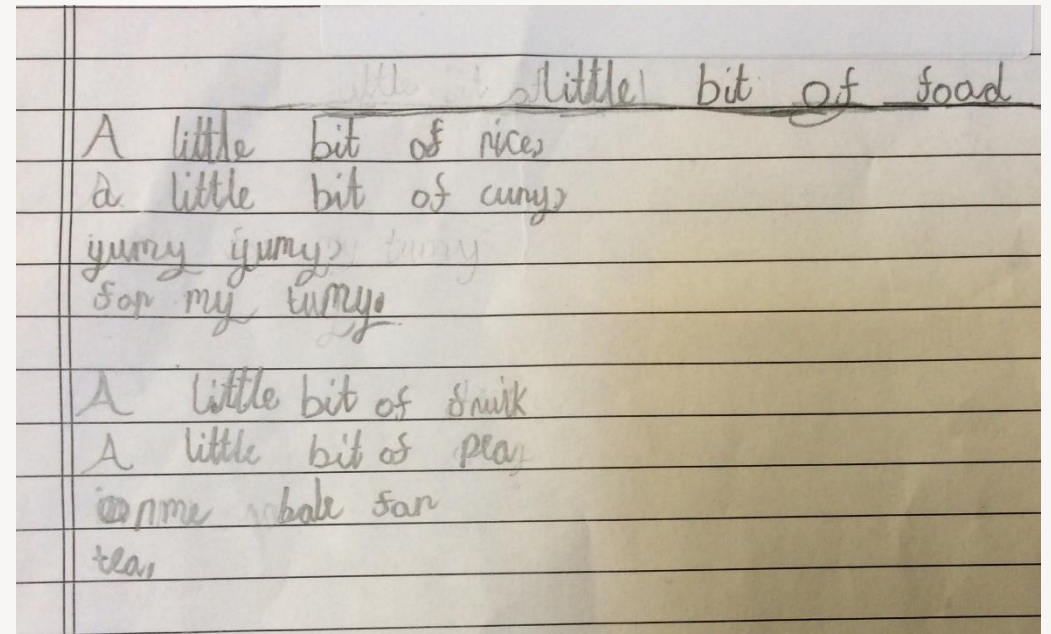 little bit of food
A little bit of rice,
a little bit of curry,
yumy yumy,
for my tumy.
A little bit of
A little bit of pea,
for
tea,